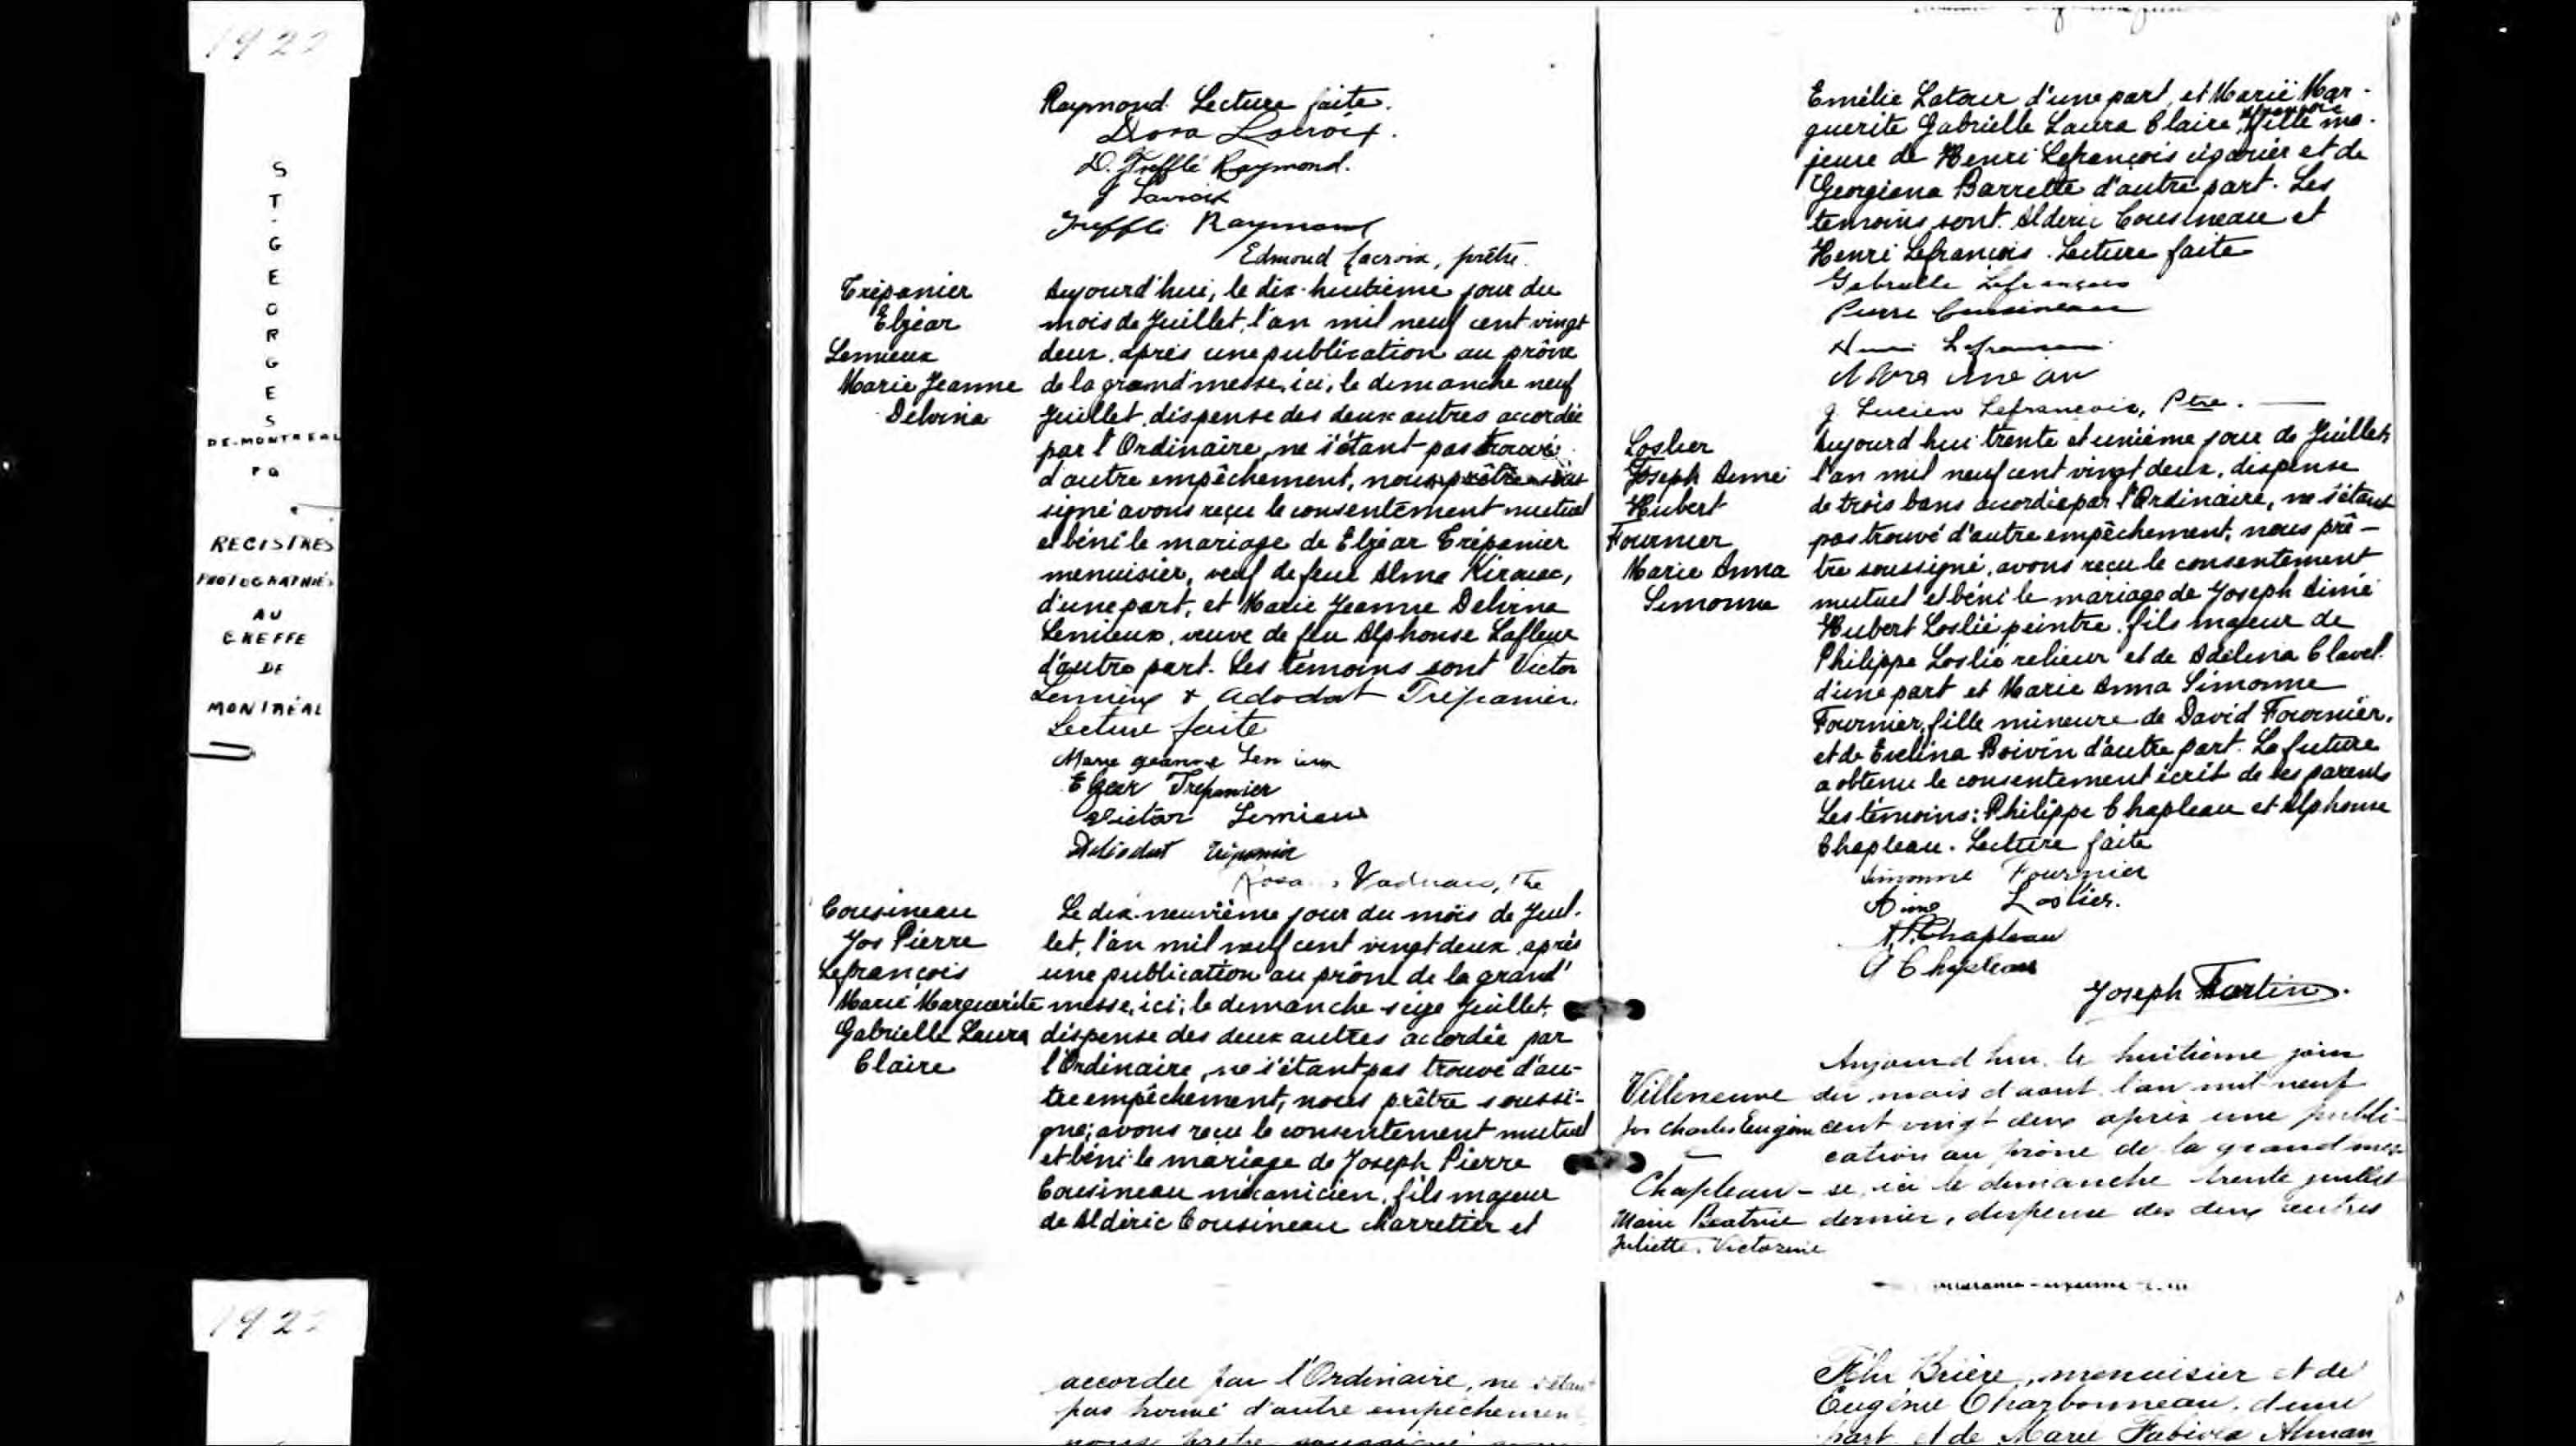 1922
ST. GEORGES
DE-MONTREAL
PQ
REGISTRES
PHOTOGRAPHIÉS
AU
GREFFE
DE
MONTRÉAL
Raymond. Lecture faite.
Dora Lacroix.
D. Trefflé Raymond.
J Lacroix
Trefflé Raymond
Edmond Lacroix, prêtre.
Trépanier
Elzéar
Lemieux
Marie Jeanne
Delvina
Aujourd'hui, le dix-huitième jour du
mois de Juillet, l'an mil neuf cent vingt
deux, après une publication au prône
de la grand'messe, ici, le dimanche neuf
Juillet, dispense des deux autres accordée
par l'Ordinaire, ne s'étant pas trouvé
d'autre empêchement, nous prêtre sous
signé avons reçu le consentement mutuel
et béni le mariage de Elzéar Trépanier
menuisier, veuf de feue Alma Kirouac,
d'une part, et Marie Jeanne Delvina
Lemieux, veuve de feu Alphonse Lafleur
d'autre part. Les témoins sont Victor
Lemieux & Adodat Trépanier.
Lecture faite
Marie Jeanne Lemieux
Elzear Trepanier
Victor Lemieux
Adéodat Trépanier
Cousineau
Jos Pierre
Lefrançois
Marie Marguerite
Gabrielle Laura
Claire
Le dix-neuvième jour du mois de Juil-
let, l'an mil neuf cent vingt deux, après
une publication au prône de la grand'
messe, ici, le dimanche seize Juillet,
dispense des deux autres accordée par
l'Ordinaire, ne s'étant pas trouvé d'au-
tre empêchement, nous prêtre soussi-
gné, avons reçu le consentement mutuel
et béni le mariage de Joseph Pierre
Cousineau mécanicien, fils majeur
de Aldéric Cousineau charretier et
Emélie Latour d'une part, et Marie Mar-
guerite Gabrielle Laura Claire, fille ma-
jeure de Henri Lefrançois cigarier et de
Georgiana Barrette d'autre part. Les
témoins sont Aldéric Cousineau et
Henri Lefrançois. Lecture faite
Gabrielle Lefrançois
Pierre Cousineau
Henri Lefrancois
J. Lucien Lefrancois, Ptre.
Loslier
Joseph Aimé
Hubert
Fournier
Marie Anna
Simonne
Aujourd'hui trente et unième jour de Juillet
l'an mil neuf cent vingt deux, dispense
de trois bans accordée par l'Ordinaire, ne s'étant
pas trouvé d'autre empêchement, nous prê-
tre soussigné, avons reçu le consentement
mutuel et béni le mariage de Joseph Aimé
Hubert Loslié peintre, fils majeur de
Philippe Loslié relieur et de Adélina Clavel.
d'une part et Marie Anna Simonne
Fournier, fille mineure de David Fournier,
et de Evelina Boivin d'autre part. La future
a obtenu le consentement écrit de ses parents
Les témoins: Philippe Chapleau et Alphonse
Chapleau. Lecture faite
Simonne Fournier
Aimé Loslier.
A.P. Chapleau
A Chapleau
Joseph Fortin.
Villeneuve
Jos Charles Eugène
Chapleau
Marie Beatrice
Juliette, Victorine
Aujourd'hui, le huitième jour
du mois d'aout, l'an mil neuf
cent vingt deux après une publi-
cation au prône de la grand mes-
se, ici le dimanche trente juillet
dernier, dispense des deux autres
1922
accordée par l'Ordinaire, ne s'étant
pas trouvé d'autre empêchement
Brière, menuisier et de
Eugénie Charbonneau, d'une
part et de Marie